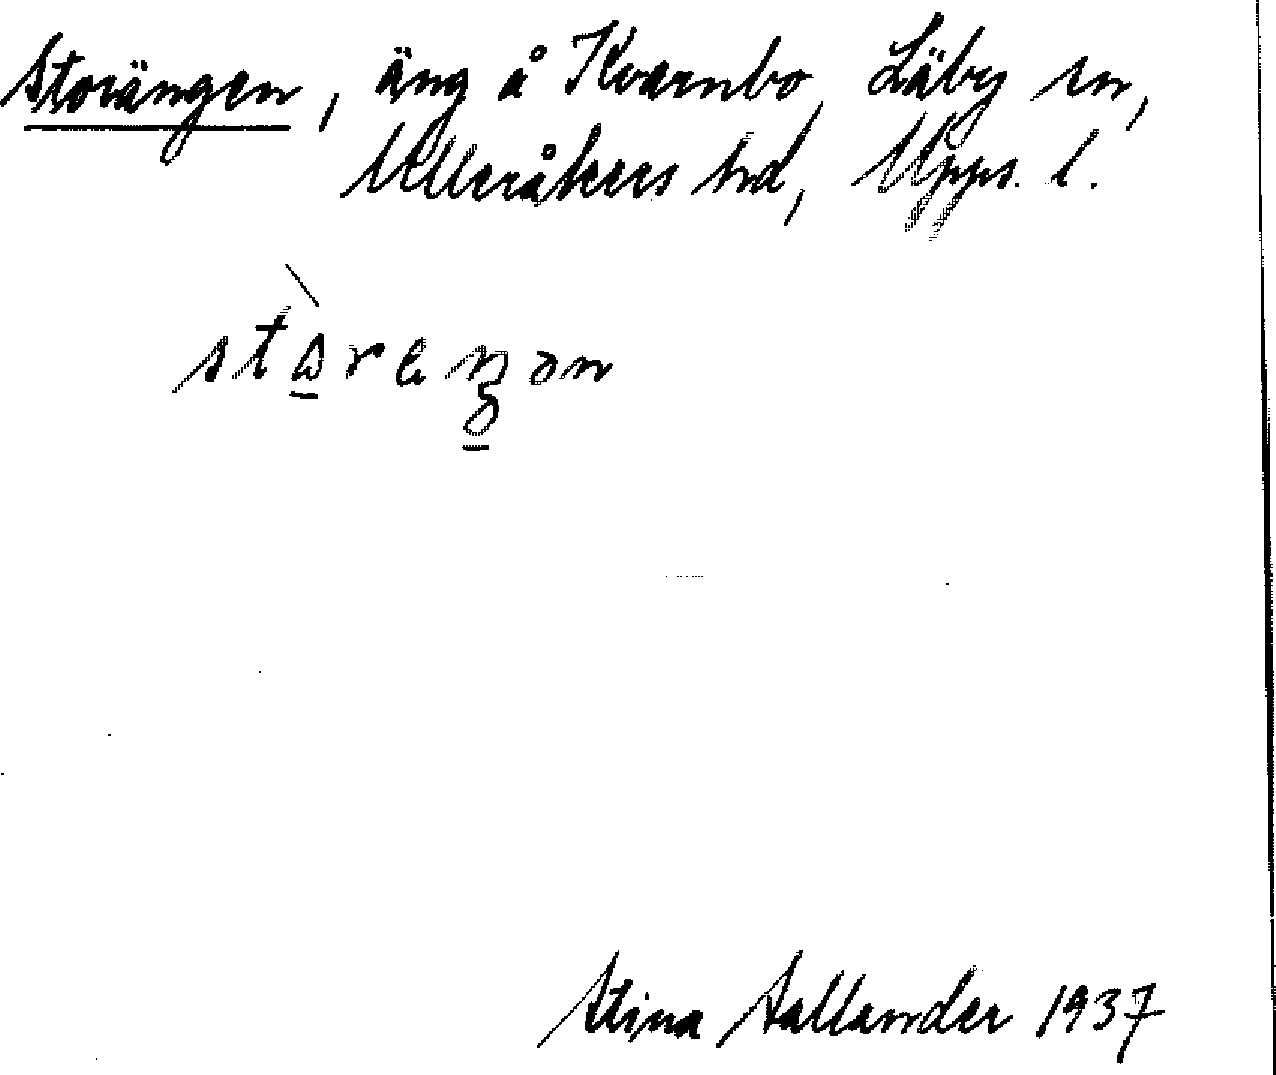 Storängen, äng å Kvarnbo, Läby sn,
Ulleråkers hd, Upps. l.
Stina Sallander 1937